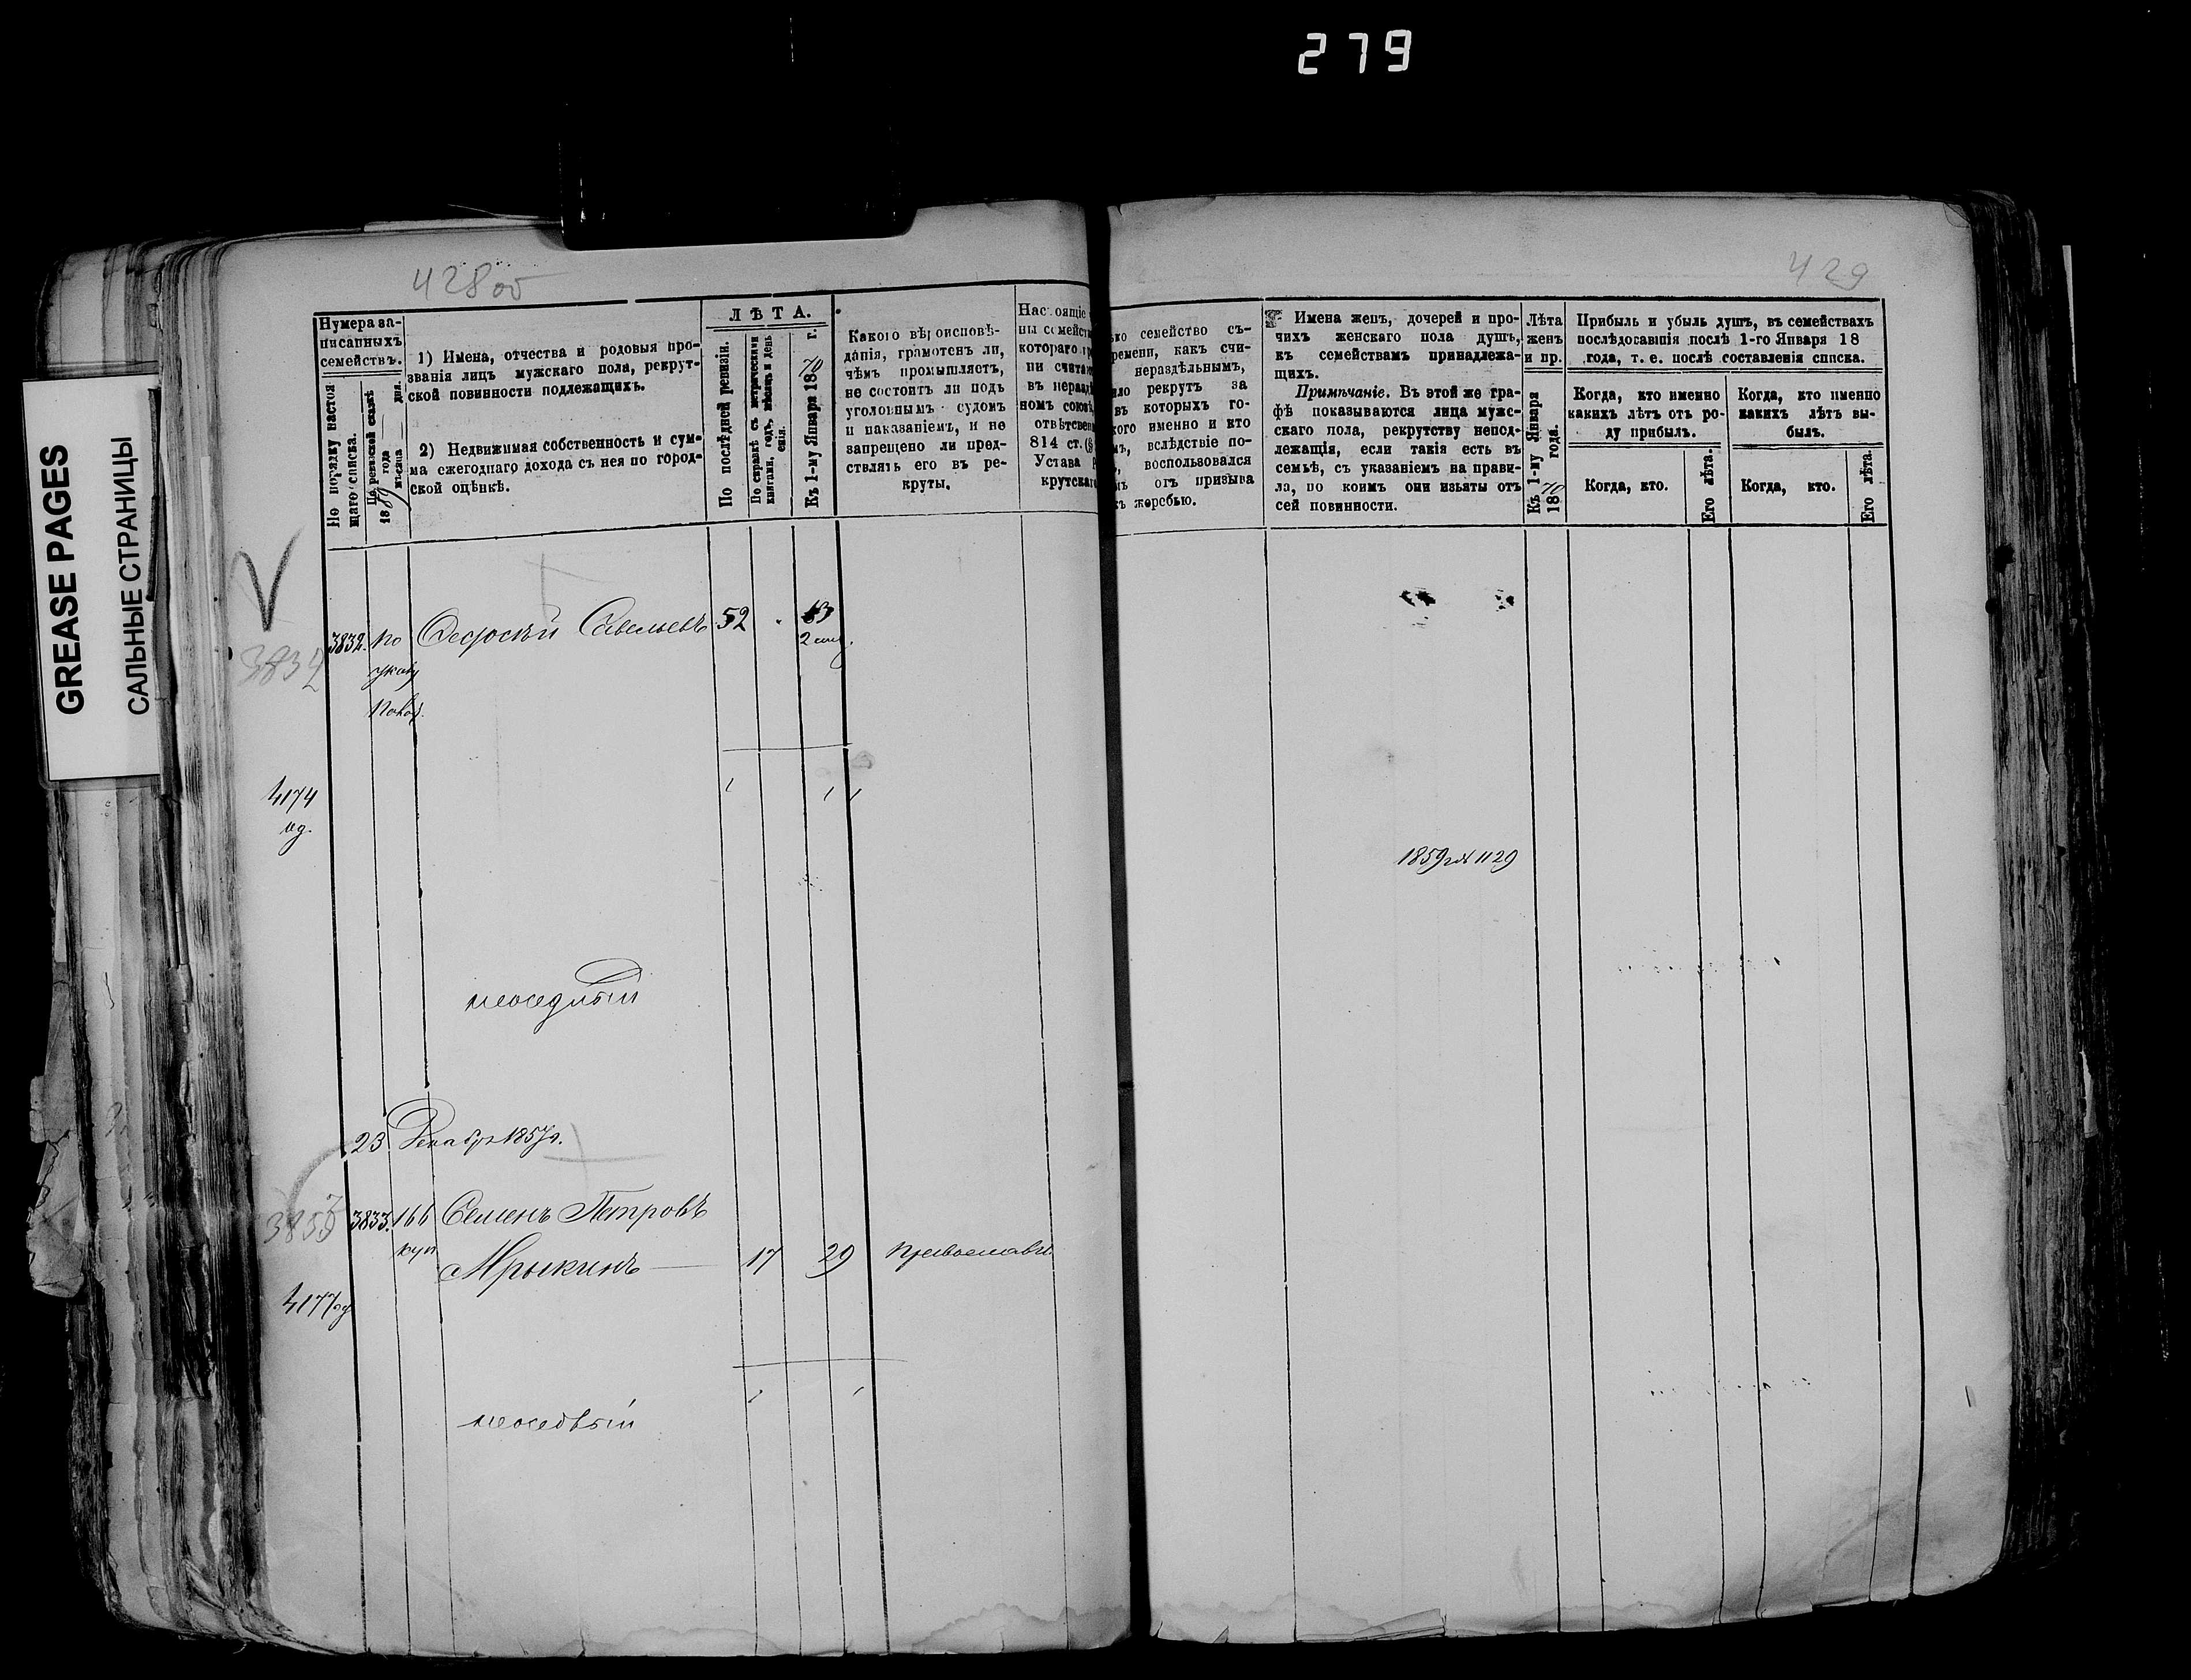 279
GREASE PAGES
САЛЬНЫЕ СТРАНИЦЫ
428об
429
Нумера за-
писанныхъ
семействъ.
По порядку настоя
щаго списка.
По ревизской сказкѣ
18 года
мѣсяца дня.
1) Имена, отчества и родовыя про-
званія лицъ мужскаго пола, рекрут-
ской повинности подлежащихъ.
2) Недвижимая собственность и сум-
ма ежегоднаго дохода съ нея по город-
ской оцѣнкѣ.
ЛѢТА.
По послѣдней ревизіи.
По справкѣ съ метрическими
книгами, годъ, мѣсяцъ и день
рожденія.
Къ 1-му Января 1870 г.
Какого вѣроисповѣ-
данія, грамотенъ ли,
чѣмъ промышляетъ,
не состоитъ ли подъ
уголовнымъ судомъ
и наказаніемъ, и не
запрещено ли пред-
ставлять его въ ре-
круты.
Настоящіе
ны семейст
котораго
ни счита
въ нераз
номъ союз
отвѣтствен
814 ст. (
Устава
крутскаг
ко семейство съ-
ремени, какъ счи-
нераздѣльнымъ,
ло рекрутъ за
въ которыхъ го-
кого именно и кто
мъ, вслѣдствіе по-
, воспользовался
мъ отъ призыва
ъ жеребью.
Имена женъ, дочерей и про-
чихъ женскаго пола душъ,
къ семействамъ принадлежа-
щихъ.
Примѣчаніе. Въ этой же гра-
фѣ показываются лица муж-
скаго пола, рекрутству непод-
лежащія, если такія есть въ
семьѣ, съ указаніемъ на прави-
ла, по коимъ они изъяты отъ
сей повинности.
Лѣта
женъ
и пр.
Къ 1-му Января
1870 года.
Прибыль и убыль душъ, въ семействахъ
послѣдовавшія послѣ 1-го Января 18
года, т. е. послѣ составленія списка.
Когда, кто именно
какихъ лѣтъ отъ ро-
ду прибылъ.
Когда, кто именно
какихъ лѣтъ вы-
былъ.
Когда, кто.
Его лѣта.
Когда, кто.
Его лѣта.
3832
3832. по Савельевъ 52
указу
4174
1859 г № 1129
неоседлый
23 Декабря 1857 г.
3833. 166 Семенъ Петровъ
куп Мрыкинъ — 17 29 православн.
4177
неоседлый